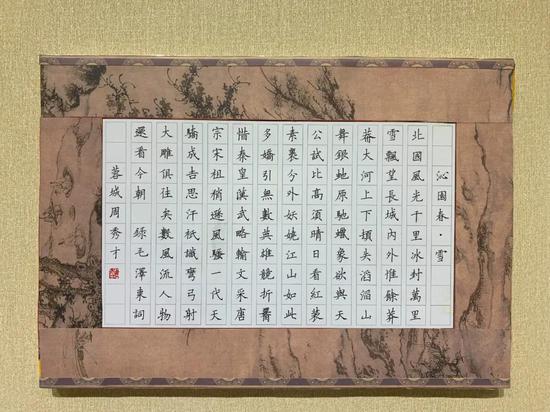 沁園春·雪
北國風光千里冰封萬里
雪飄望長城內外惟餘莽
莽大河上下頓失滔滔山
舞銀蛇原馳蠟象欲與天
公試比高須晴日看紅裝
素裹分外妖嬈江山如此
多嬌引無數英雄競折腰
惜秦皇漢武略輸文采唐
宗宋祖稍遜風騷一代天
驕成吉思汗祇識彎弓射
大雕俱往矣數風流人物
還看今朝 錄毛澤東詞
蓉城周秀才